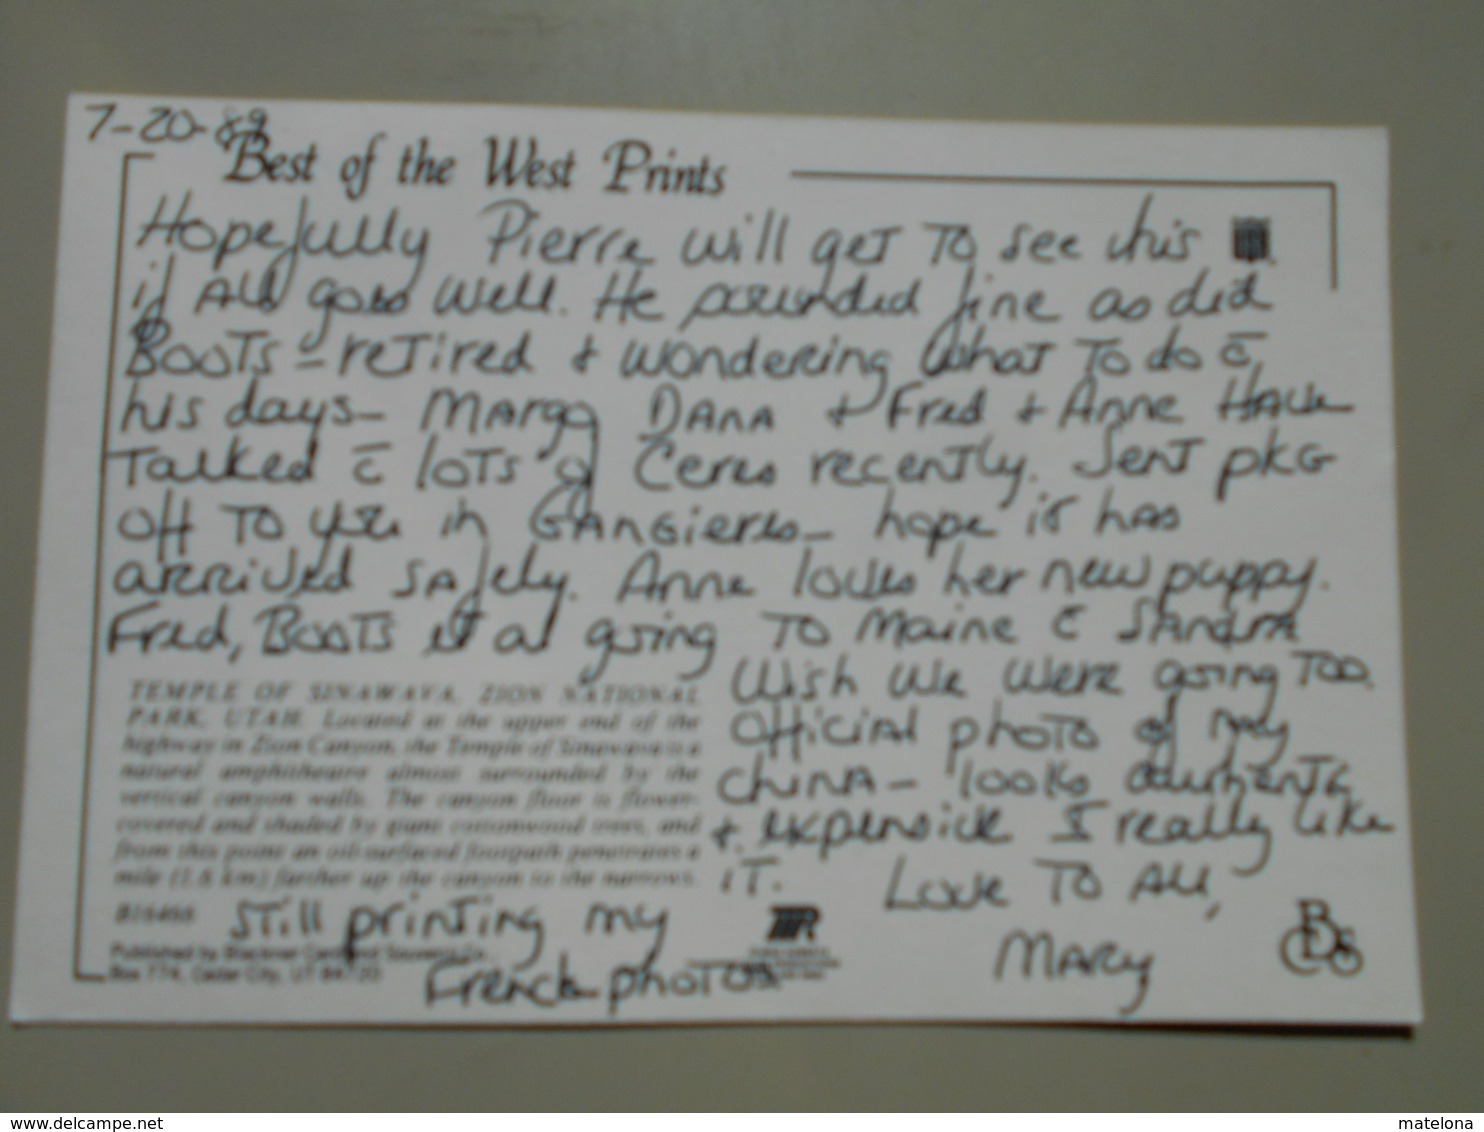 7-20-89
Best of the West Prints
Hopefully Pierre will get to see this
if all goes well. He sounded fine as did
Boots - retired + wondering what to do c̄
his days - Margo Dana + Fred + Anne Hall
Talked c̄ lots of Ceres recently. Sent pkg
off to you in Gangieres - hope it has
arrived safely. Anne loves her new puppy.
Fred, Boots et al going to Maine c̄ Sandra
Wish we were going too.
Official photo of my
china - looks authentic
+ expensive I really like
it. Love to all,
Mary
TEMPLE OF SINAWAVA, ZION NATIONAL
PARK, UTAH. Located at the upper end of the
highway in Zion Canyon, the Temple of Sinawava is a
natural amphitheatre almost surrounded by the
vertical canyon walls. The canyon floor is flower-
covered and shaded by giant cottonwood trees, and
from this point an oil-surfaced footpath penetrates a
mile (1.6 km) farther up the canyon to the narrows.
B16466
Still printing my
French photos
Published by Blackner Card and Souvenir Co.,
Box 774, Cedar City, UT 84720
delcampe.net
matelona